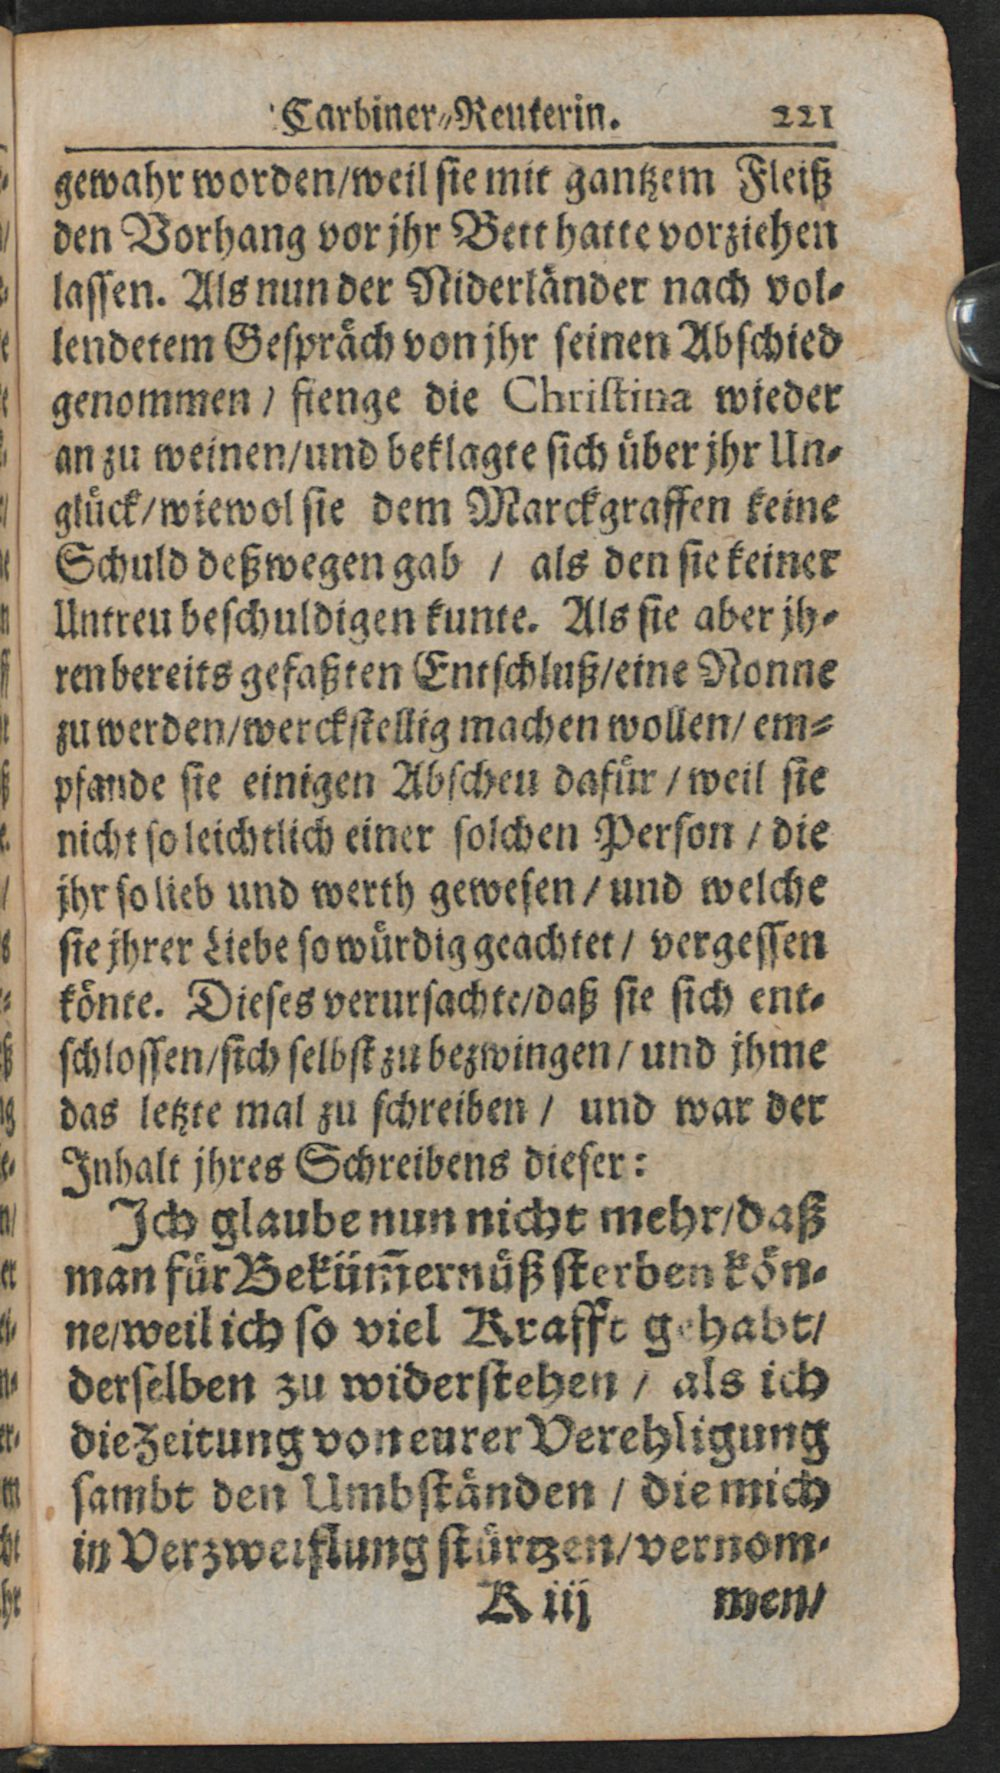 Carbiner-Reuterin. 221
gewahr worden/weil sie mit gantzem Fleiß
den Vorhang vor jhr Bett hatte vorziehen
lassen. Als nun der Niderländer nach vol-
lendetem Gespräch von jhr seinen Abschied
genommen / fienge die Christina wieder
an zu weinen/und beklagte sich über jhr Un-
glück/wiewol sie dem Marckgraffen keine
Schuld deßwegen gab / als den sie keiner
Untreu beschuldigen kunte. Als sie aber jh-
ren bereits gefaßten Entschluß/eine Nonne
zu werden/werckstellig machen wollen/ em-
pfande sie einigen Abscheu dafür / weil sie
nicht so leichtlich einer solchen Person / die
jhr so lieb und werth gewesen / und welche
sie jhrer Liebe so würdig geachtet / vergessen
könte. Dieses verursachte/daß sie sich ent-
schlossen/sich selbst zu bezwingen / und jhme
das letzte mal zu schreiben / und war der
Inhalt jhres Schreibens dieser:
Ich glaube nun nicht mehr/daß
man für Beküm̄ernüß sterben kön-
ne/weil ich so viel Krafft gehabt/
derselben zu widerstehen / als ich
die Zeitung von eurer Verehligung
sambt den Umbständen / die mich
in Verzweiflung stürtzen/vernom-
K iij men/